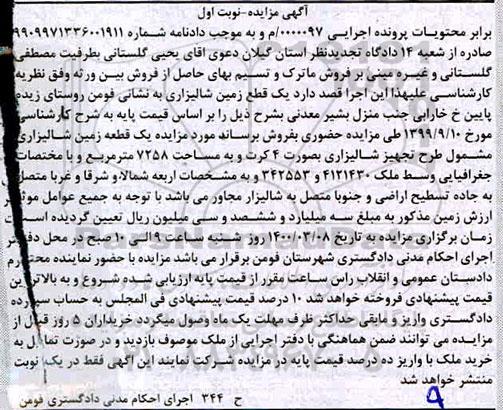 آگهی مزایده-نوبت اول
برابر محتویات پرونده اجرایی ۰۰۰۰۰۹۷/م و به موجب دادنامه شماره ۹۹۰۹۹۷۱۳۳۶۰۰۱۹۱۱
صادره از شعبه ۱۴ دادگاه تجدیدنظر استان گیلان دعوی آقای یحیی گلستانی بطرفیت مصطفی
گلستانی و غیره مبنی بر فروش ماترک و تسیم بهای حاصل از فروش بین ورثه وفق نظریه
کارشناسی علیهذا این اجرا قصد دارد یک قطع زمین شالیزاری به نشانی فومن روستای زیده
پایین خ خارابی جنب منزل بشیر معدنی بشرح ذیل را بر اساس قیمت پایه به شرح کارشناسی
مورخ ۱۳۹۹/۹/۱۰ طی مزایده حضوری بفروش برساند مورد مزایده یک قطعه زمین شالیزاری
مشمول طرح تجهیز شالیزاری بصورت ۴ کرت و به مساحت ۷۲۵۸ مترمربع و با مختصات
جغرافیایی وسط ملک ۴۱۲۱۴۳۰ و ۳۴۲۵۵۳ و به مشخصات اربعه شمالاو شرقا و غربا متصل
به جاده تسطیح اراضی و جنوبا متصل به شالیزار مجاور می باشد با توجه به جمیع عوامل موثر
ارزش زمین مذکور به مبلغ سه میلیارد و ششصد و سی میلیون ریال تعیین گردیده است
زمان برگزاری مزایده به تاریخ ۱۴۰۰/۰۳/۰۸ روز شنبه ساعت ۹ الی ۱۰ صبح در محل دفتر
اجرای احکام مدنی دادگستری شهرستان فومن برقرار می باشد مزایده با حضور نماینده محترم
دادستان عمومی و انقلاب راس ساعت مقرر از قیمت پایه ارزیابی شده شروع و به بالاترین
قیمت پیشنهادی فروخته خواهد شد ۱۰ درصد قیمت پیشنهادی فی المجلس به حساب سپرده
دادگستری واریز و مابقی حداکثر ظرف مهلت یک ماه وصول میگردد خریداران ۵ روز قبل از
مزایده می توانند ضمن هماهنگی با دفتر اجرایی از ملک موصوف بازدید و در صورت تمایل به
خرید ملک با واریز ده درصد قیمت پایه در مزایده شرکت نمایند این آگهی فقط در یک نوبت
منتشر خواهد شد
ح ۳۴۴ اجرای احکام مدنی دادگستری فومن